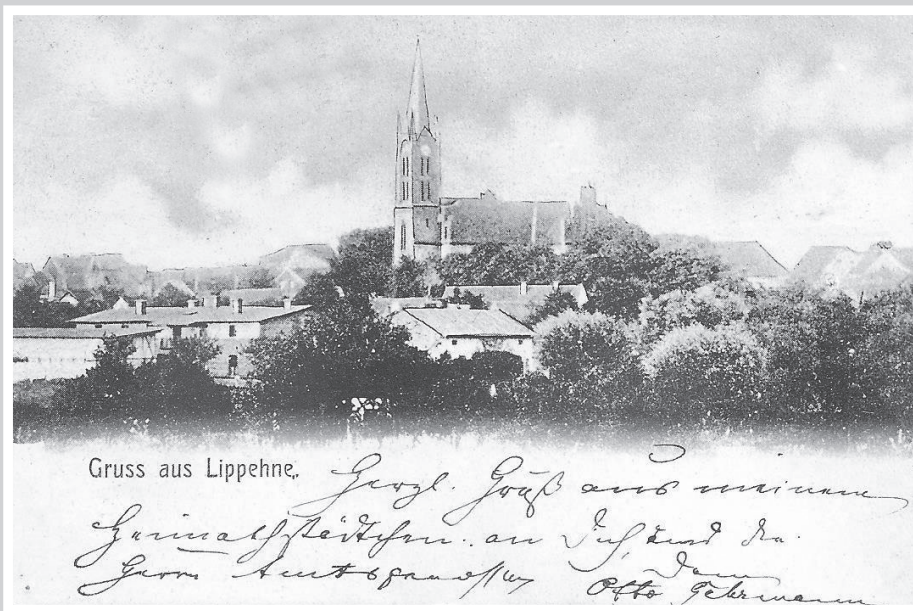 Gruss aus Lippehne.
Herzl. Grüß aus meinem
Heimathstädtchen. an Dich und die
Herrn Amtsgenossen
Dein
Otto Gehrmann